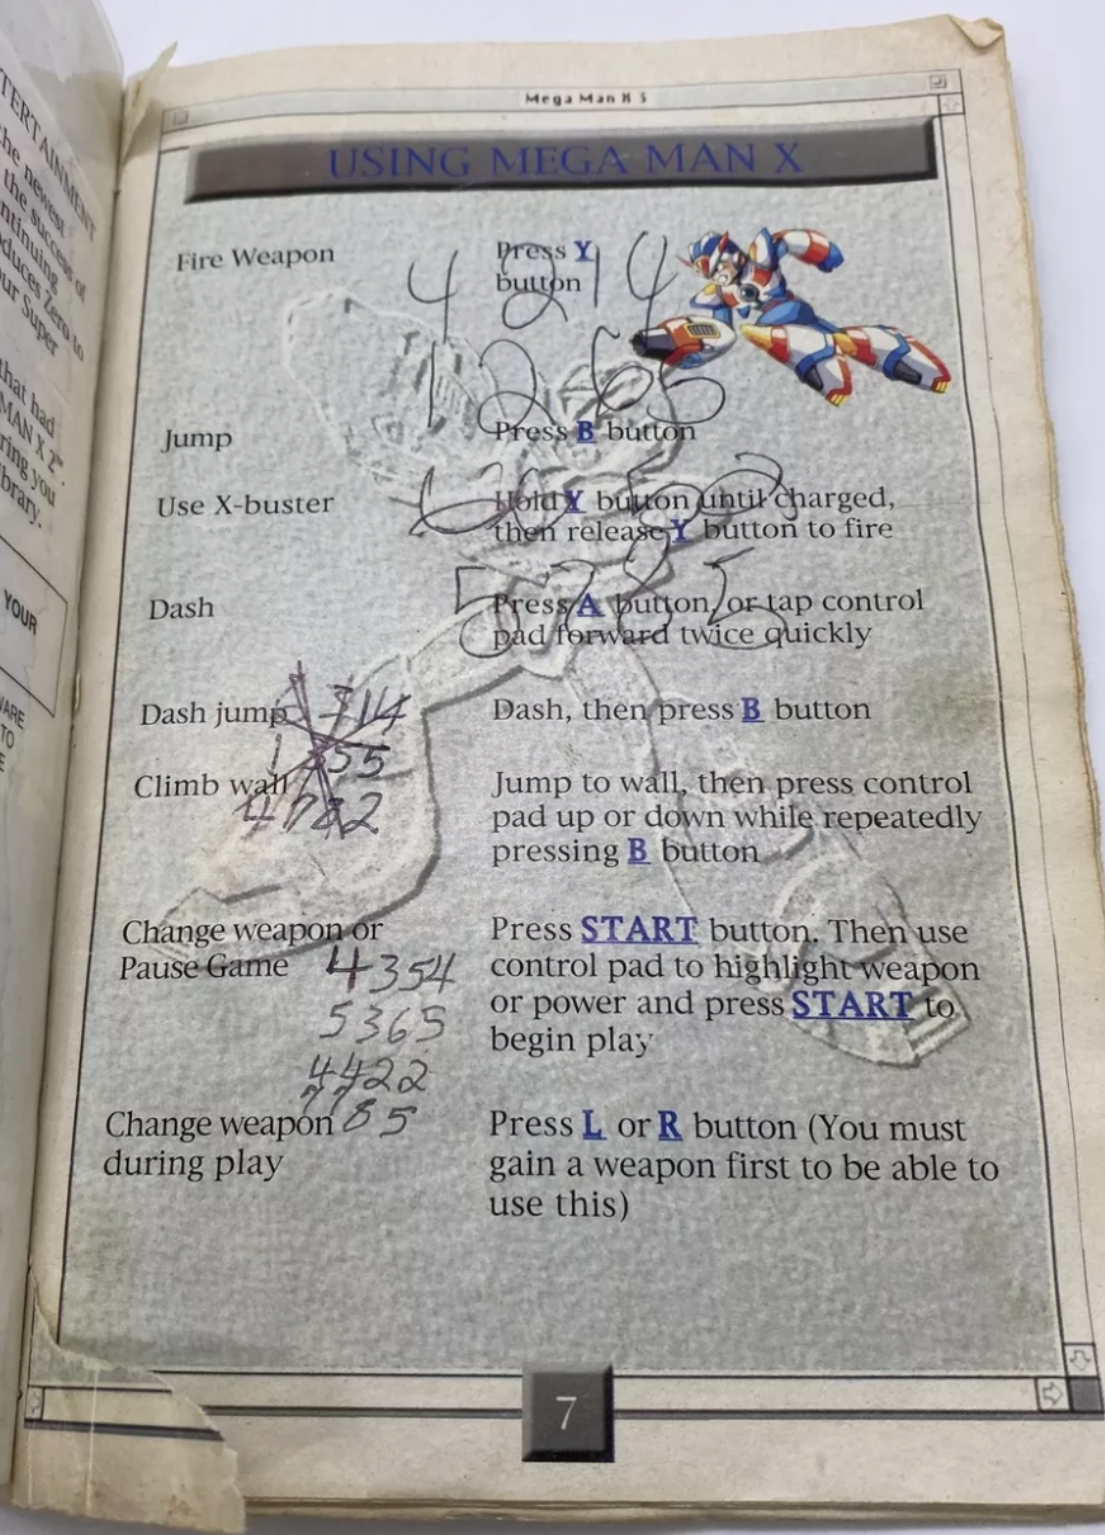 TERTAINMENT
the newest
the success of
ntinuing
duces Zero to
ur Super
that had
MAN X 2™.
ring you
ibrary.
YOUR
WARE
TO
Mega Man X 3
USING MEGA MAN X
Fire Weapon
Press Y
button
4 2 1 4
1 2 6 5
Jump
Press B button
Use X-buster
Hold Y button until charged,
then release Y button to fire
Dash
Press A button, or tap control
pad forward twice quickly
Dash jump
Dash, then press B button
Climb wall
Jump to wall, then press control
pad up or down while repeatedly
pressing B button
Change weapon or
Pause Game
4354
5365
4422
7785
Press START button. Then use
control pad to highlight weapon
or power and press START to
begin play
Change weapon
during play
Press L or R button (You must
gain a weapon first to be able to
use this)
7